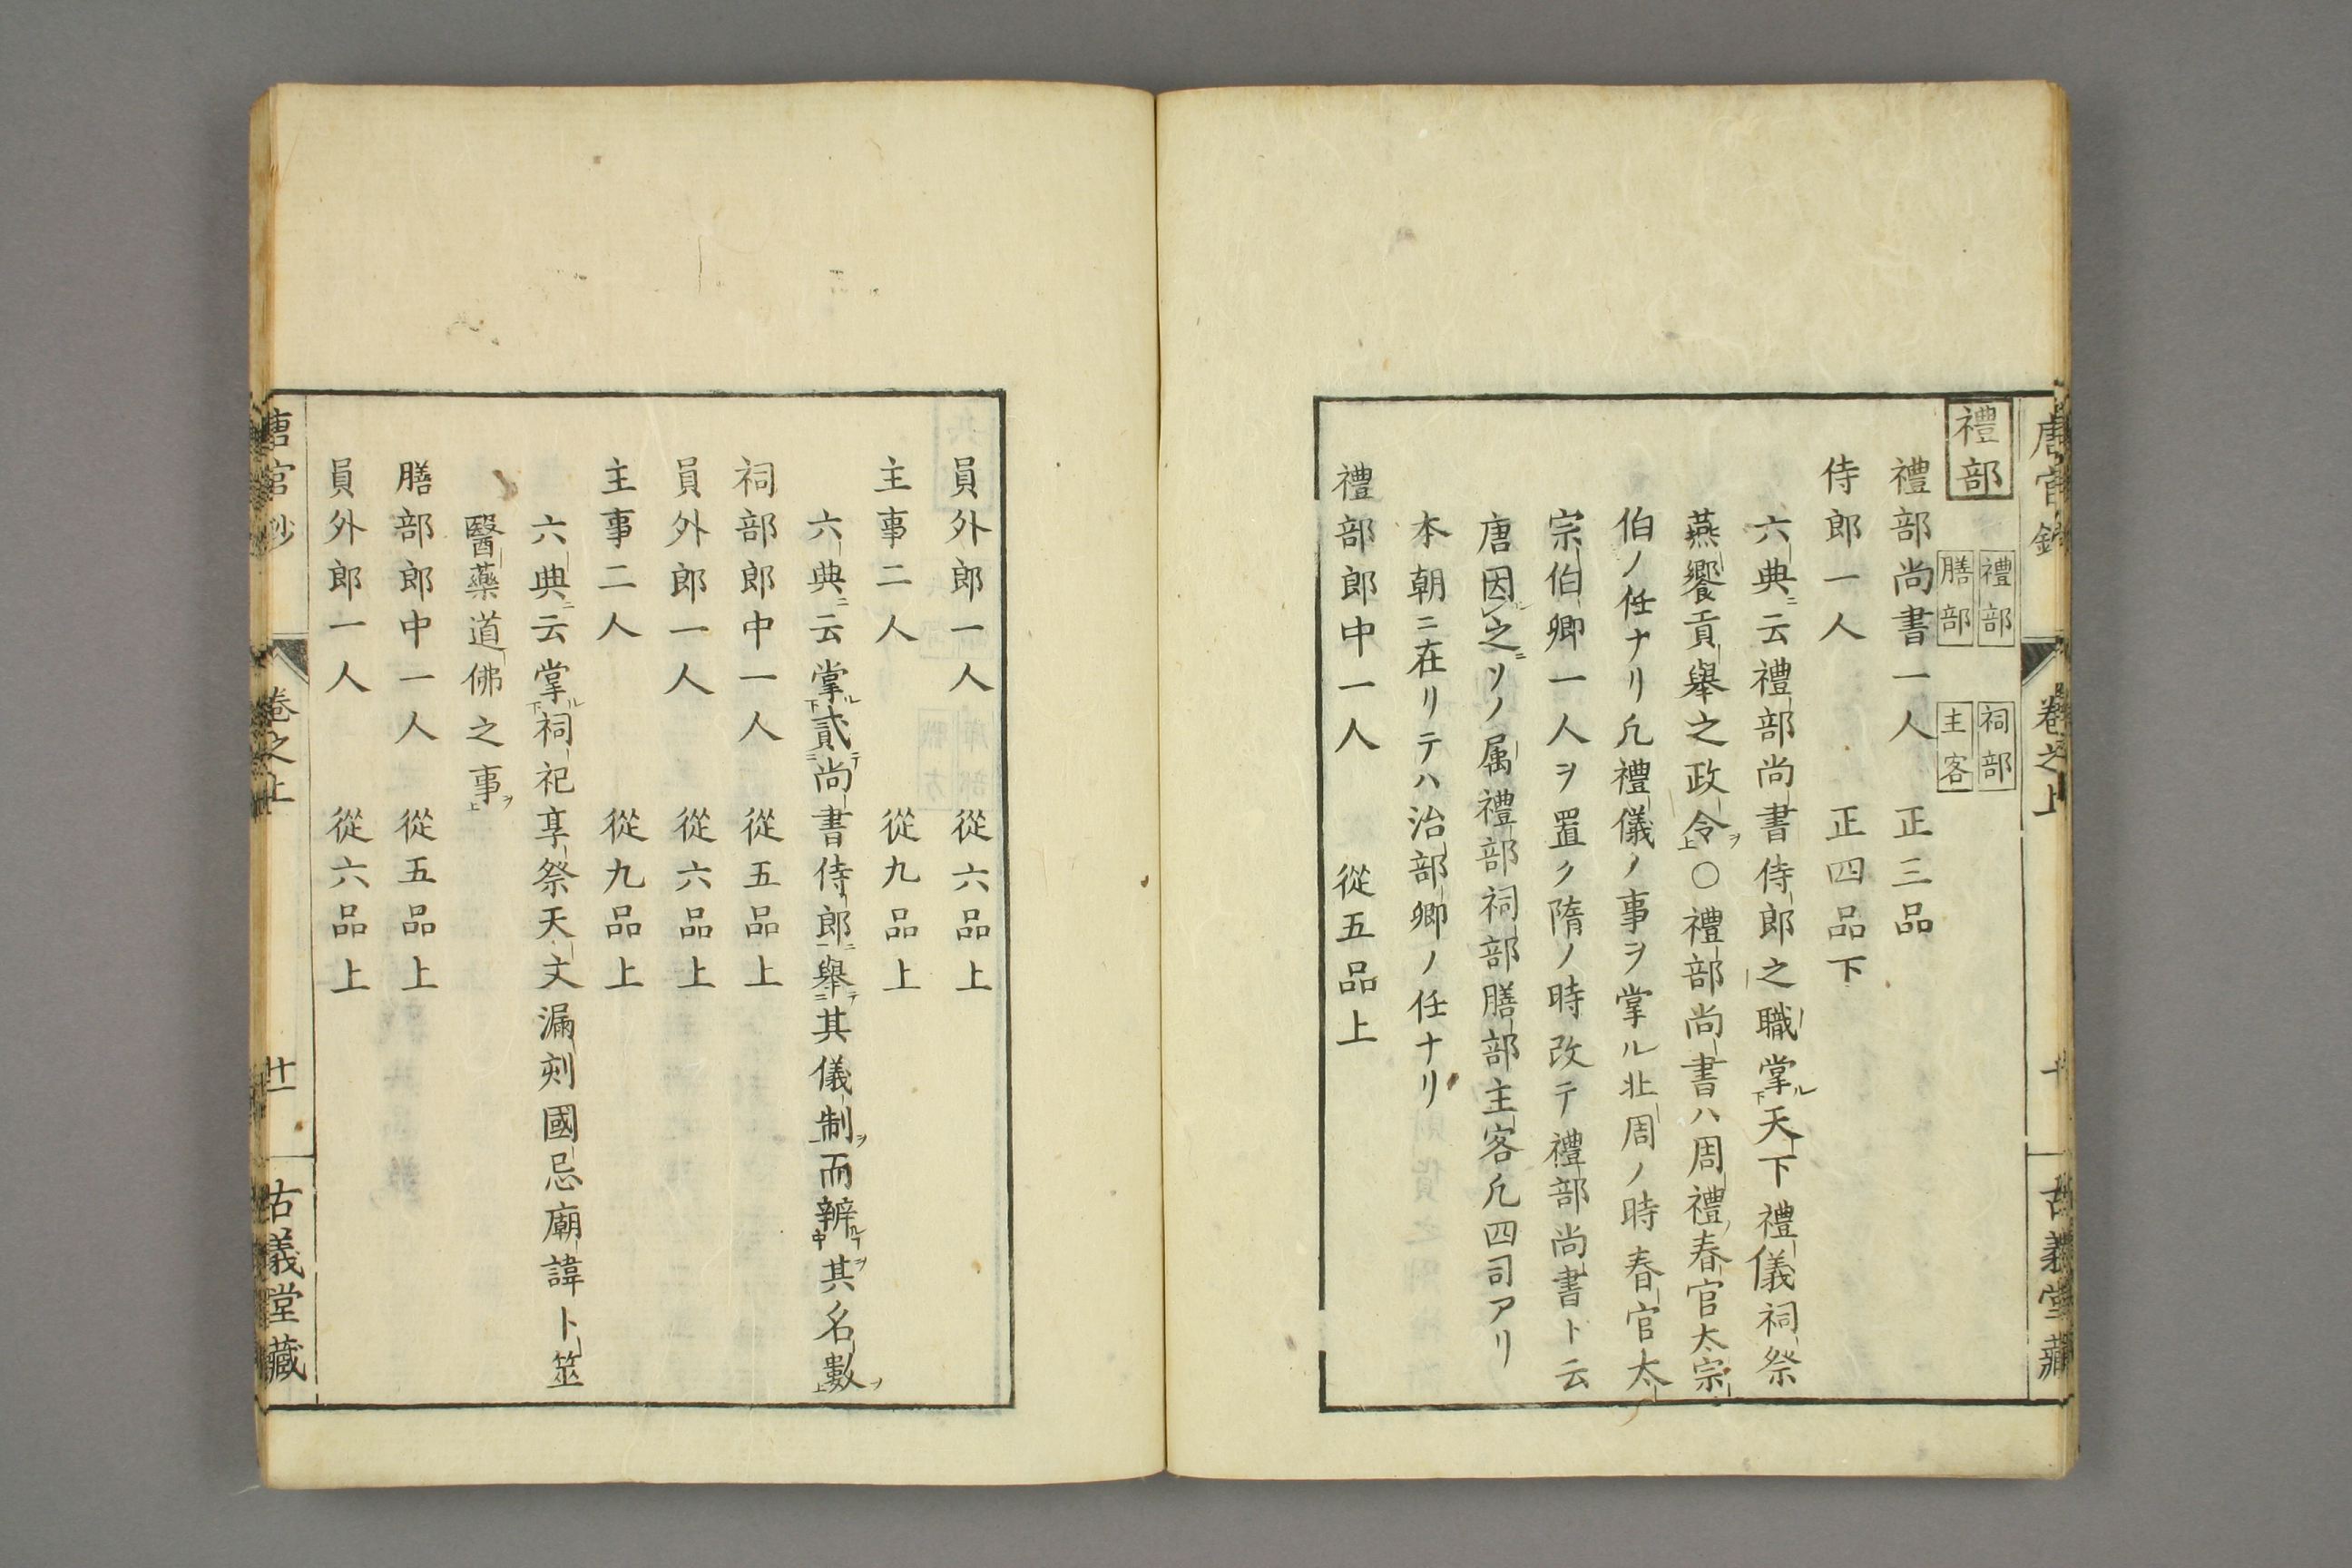 唐官鈔 卷之上 十 古義堂藏
禮部 禮部 祠部 膳部 主客
禮部尚書一人 正三品
侍郎一人 正四品下
六典ニ云禮部尚書侍郎之職掌ル下天下禮儀祠祭
燕饗貢舉之政令ヲ上○禮部尚書ハ周禮ノ春官太宗
伯ノ任ナリ凡禮儀ノ事ヲ掌ル北周ノ時春官太
宗伯卿一人ヲ置ク隋ノ時改テ禮部尚書ト云
唐因ルレ之ニソノ属禮部祠部膳部主客凡四司アリ
本朝ニ在リテハ治部卿ノ任ナリ
禮部郎中一人 從五品上
員外郎一人 從六品上
主事二人 從九品上
六典ニ云掌ル下貳テ二尚書侍郎ニ一舉テ二其儀制ヲ一而辨ルヿヲ中其名數ヲ上
祠部郎中一人 從五品上
員外郎一人 從六品上
主事二人 從九品上
六典ニ云掌ル下祠祀享祭天文漏刻國忌廟諱卜筮
醫藥道佛之事ヲ上
膳部郎中一人 從五品上
員外郎一人 從六品上
唐官鈔 卷之上 廿一 古義堂藏